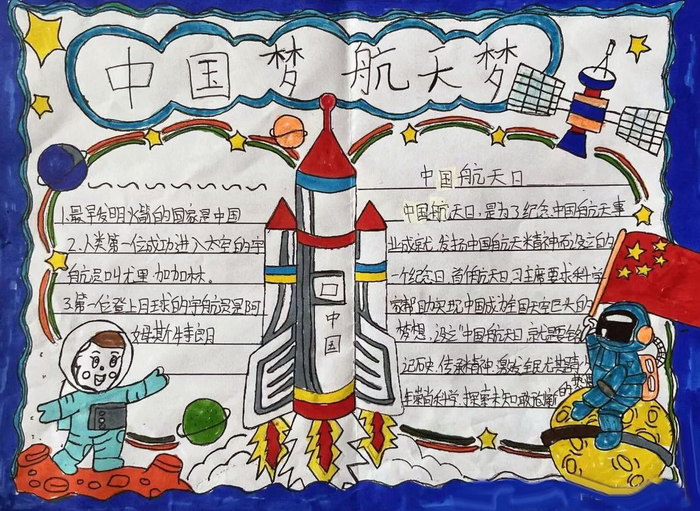 中国梦 航天梦
1.最早发明火箭的国家是中国
2.人类第一位成功进入太空的宇
航员叫尤里加加林。
3.第一位登上月球的宇航员是阿
姆斯特朗
中国
中国航天日
中国航天日,是为了纪念中国航天事
业成就,发扬中国航天精神而设立的
一个纪念日,首个航天日习主席要求科学
家帮助实现中国成为全国太空巨头的
梦想,设立"中国航天日,就是要铭
记历史,传承精神,激发全民尤其
年崇尚科学,探索未知敢